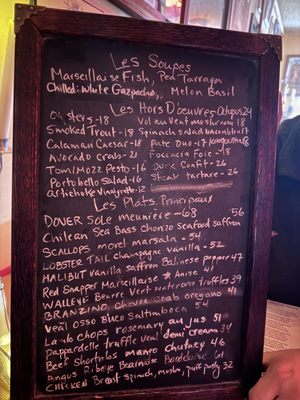 Les Soupes
Marseillaise Fish, Pea Tarragon
Chilled: White Gazpacho, Melon Basil
Les Hors D'oeuvres Octopus 24
Oysters - 18 Vol au Vent mushroom 18
Smoked Trout - 18 Spinach salad 17
Calamari Caesar - 18 Pate Duo - 17
Avocado crab - 21 Focaccia Foie - 18
Tom/Mozz Pesto - 16 Duck Confit - 26
Portobello Salad - 16 Steak tartare - 26
artichoke Vinaigrette - 12
Les Plats Principaux
DOVER Sole meuniere - 68
Chilean Sea Bass Chorizo Seafood saffron 56
SCALLOPS morel marsala - 54
LOBSTER TAIL champagne vanilla - 52
HALIBUT vanilla saffron Balinese pepper 47
Red Snapper Marseillaise Anise 41
WALLEYE Beurre Vert truffles 39
BRANZINO, crab oregano 41
Veal Osso Buco Saltimboca 54
Lamb chops rosemary au jus 51
Pappardelle truffle veal demi cream 39
Beef Shortribs mango chutney 46
Angus Ribeye Bearnaise Bordelaise 61
CHICKEN Breast spinach, mushm, puff pastry 32